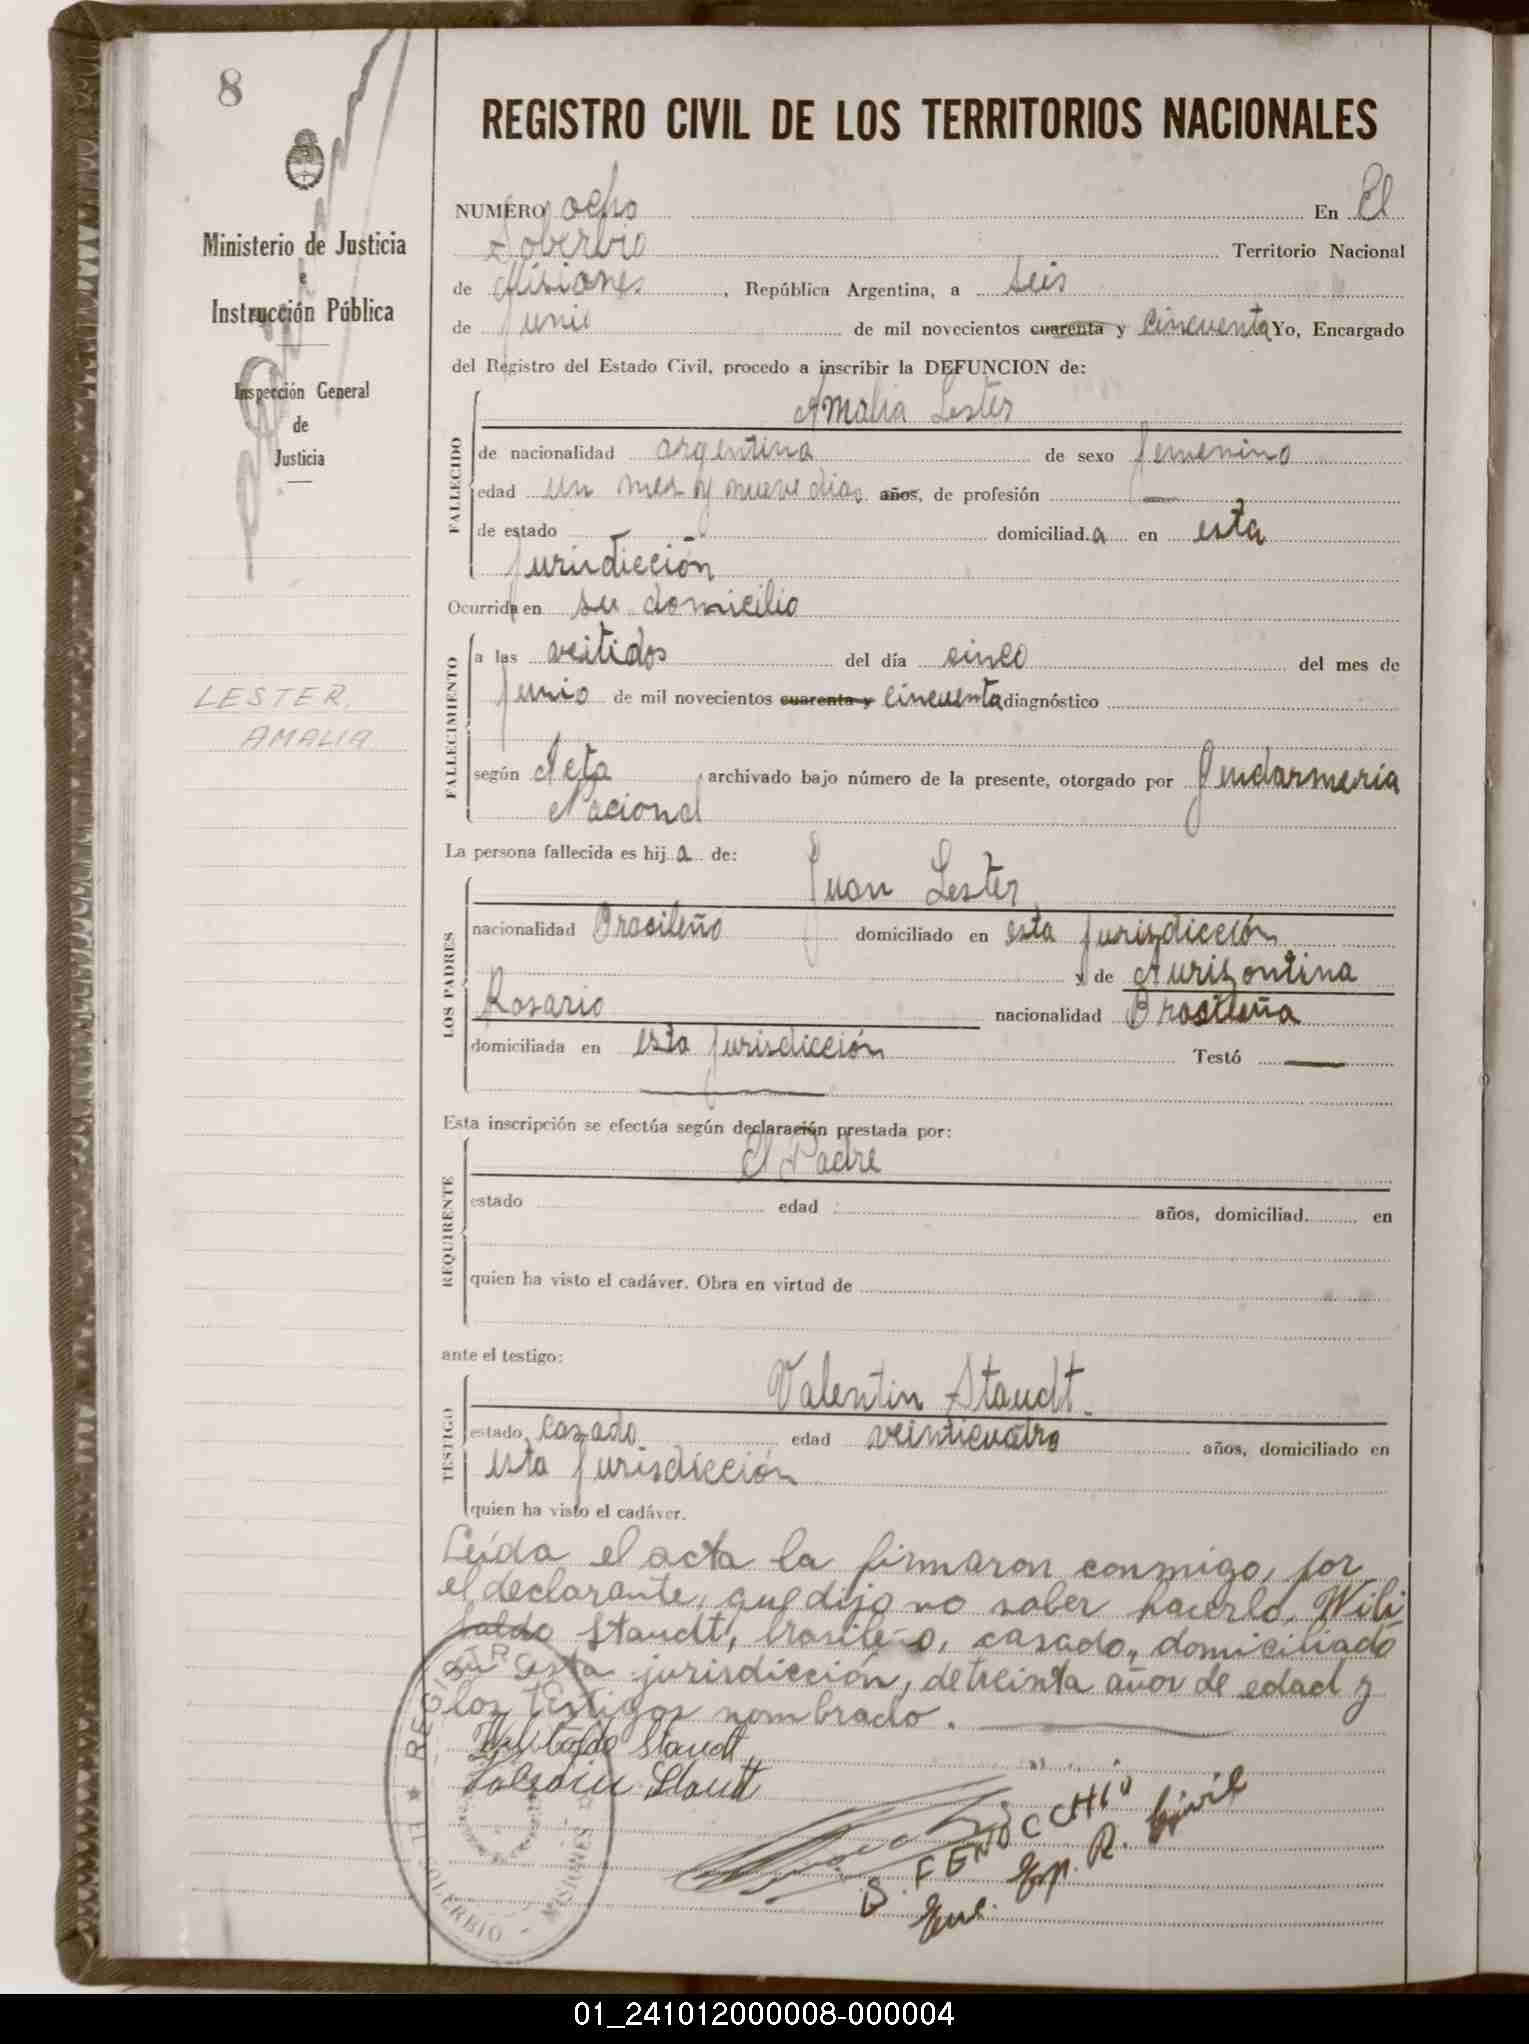 8
REGISTRO CIVIL DE LOS TERRITORIOS NACIONALES
Ministerio de Justicia
e
Instrucción Pública
Inspección General
de
Justicia
LESTER,
AMALIA
NUMERO ocho En El
Soberbio Territorio Nacional
de Misiones, República Argentina, a seis
de Junio de mil novecientos cuarenta y Cincuenta Yo, Encargado
del Registro del Estado Civil, procedo a inscribir la DEFUNCION de:
FALLECIDO
Amalia Lester
de nacionalidad argentina de sexo femenino
edad un mes y nueve dias años, de profesión
de estado domiciliad.a en esta
Jurisdicción
Ocurrida en su domicilio
FALLECIMIENTO
a las veitidos del día cinco del mes de
Junio de mil novecientos cuarenta y Cincuenta diagnóstico
según Acta archivado bajo número de la presente, otorgado por Gendarmeria
Nacional
La persona fallecida es hij.a de:
LOS PADRES
Juan Lester
nacionalidad Brasileño domiciliado en esta Jurisdicción
y de Aurizontina
Rosario nacionalidad Brasileña
domiciliada en esta Jurisdicción Testó
Esta inscripción se efectúa según declaración prestada por:
REQUIRENTE
El Padre
estado edad años, domiciliad en
quien ha visto el cadáver. Obra en virtud de
ante el testigo:
TESTIGO
Valentin Staudt.
estado casado edad veinticuatro años, domiciliado en
esta Jurisdicción
quien ha visto el cadáver.
Leída el acta la firmaron conmigo, por
el declarante, que dijo no saber hacerlo, Wili
baldo Staudt, brasileño, casado, domiciliado
en esta jurisdicción, de treinta años de edad y
los testigos nombrado.
Willibaldo Staudt
Valentin Staudt
REGISTRO
EL SOBERBIO - MISIONES
B. FENOCCHIO
Enc. R. Civil
01_241012000008-000004